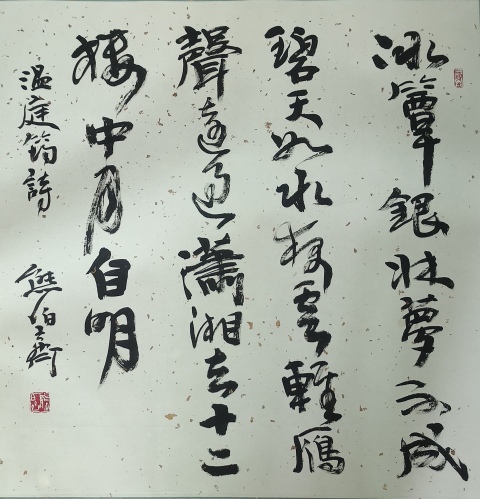 冰簟銀牀夢不成
碧天如水夜雲輕雁
聲遠過瀟湘去十二
樓中月自明
温庭筠詩
熊伯齊